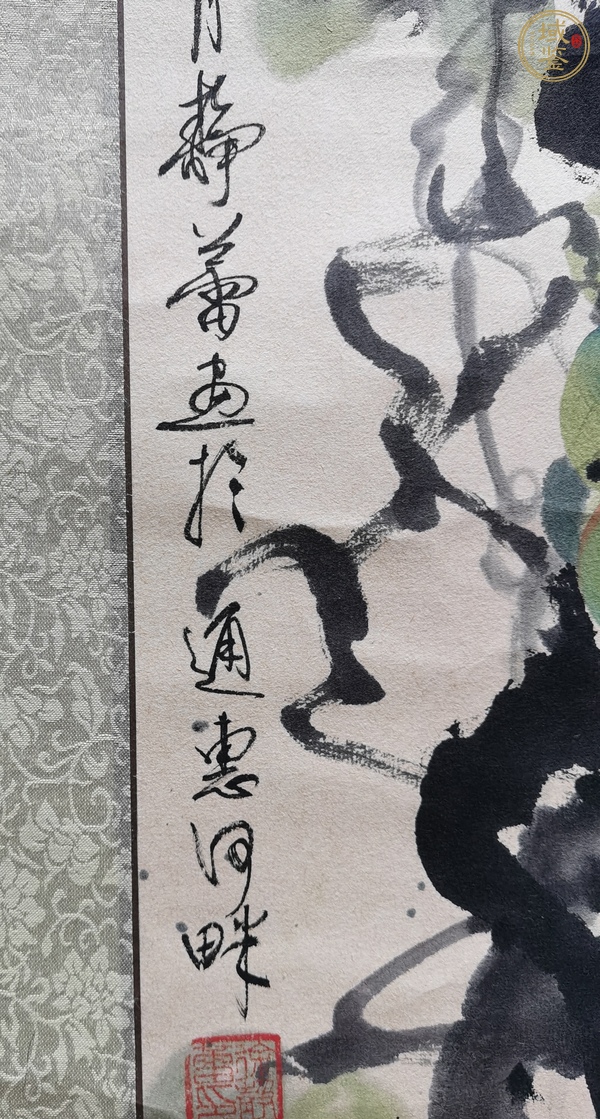 月静蕾画於通惠河畔
域鉴